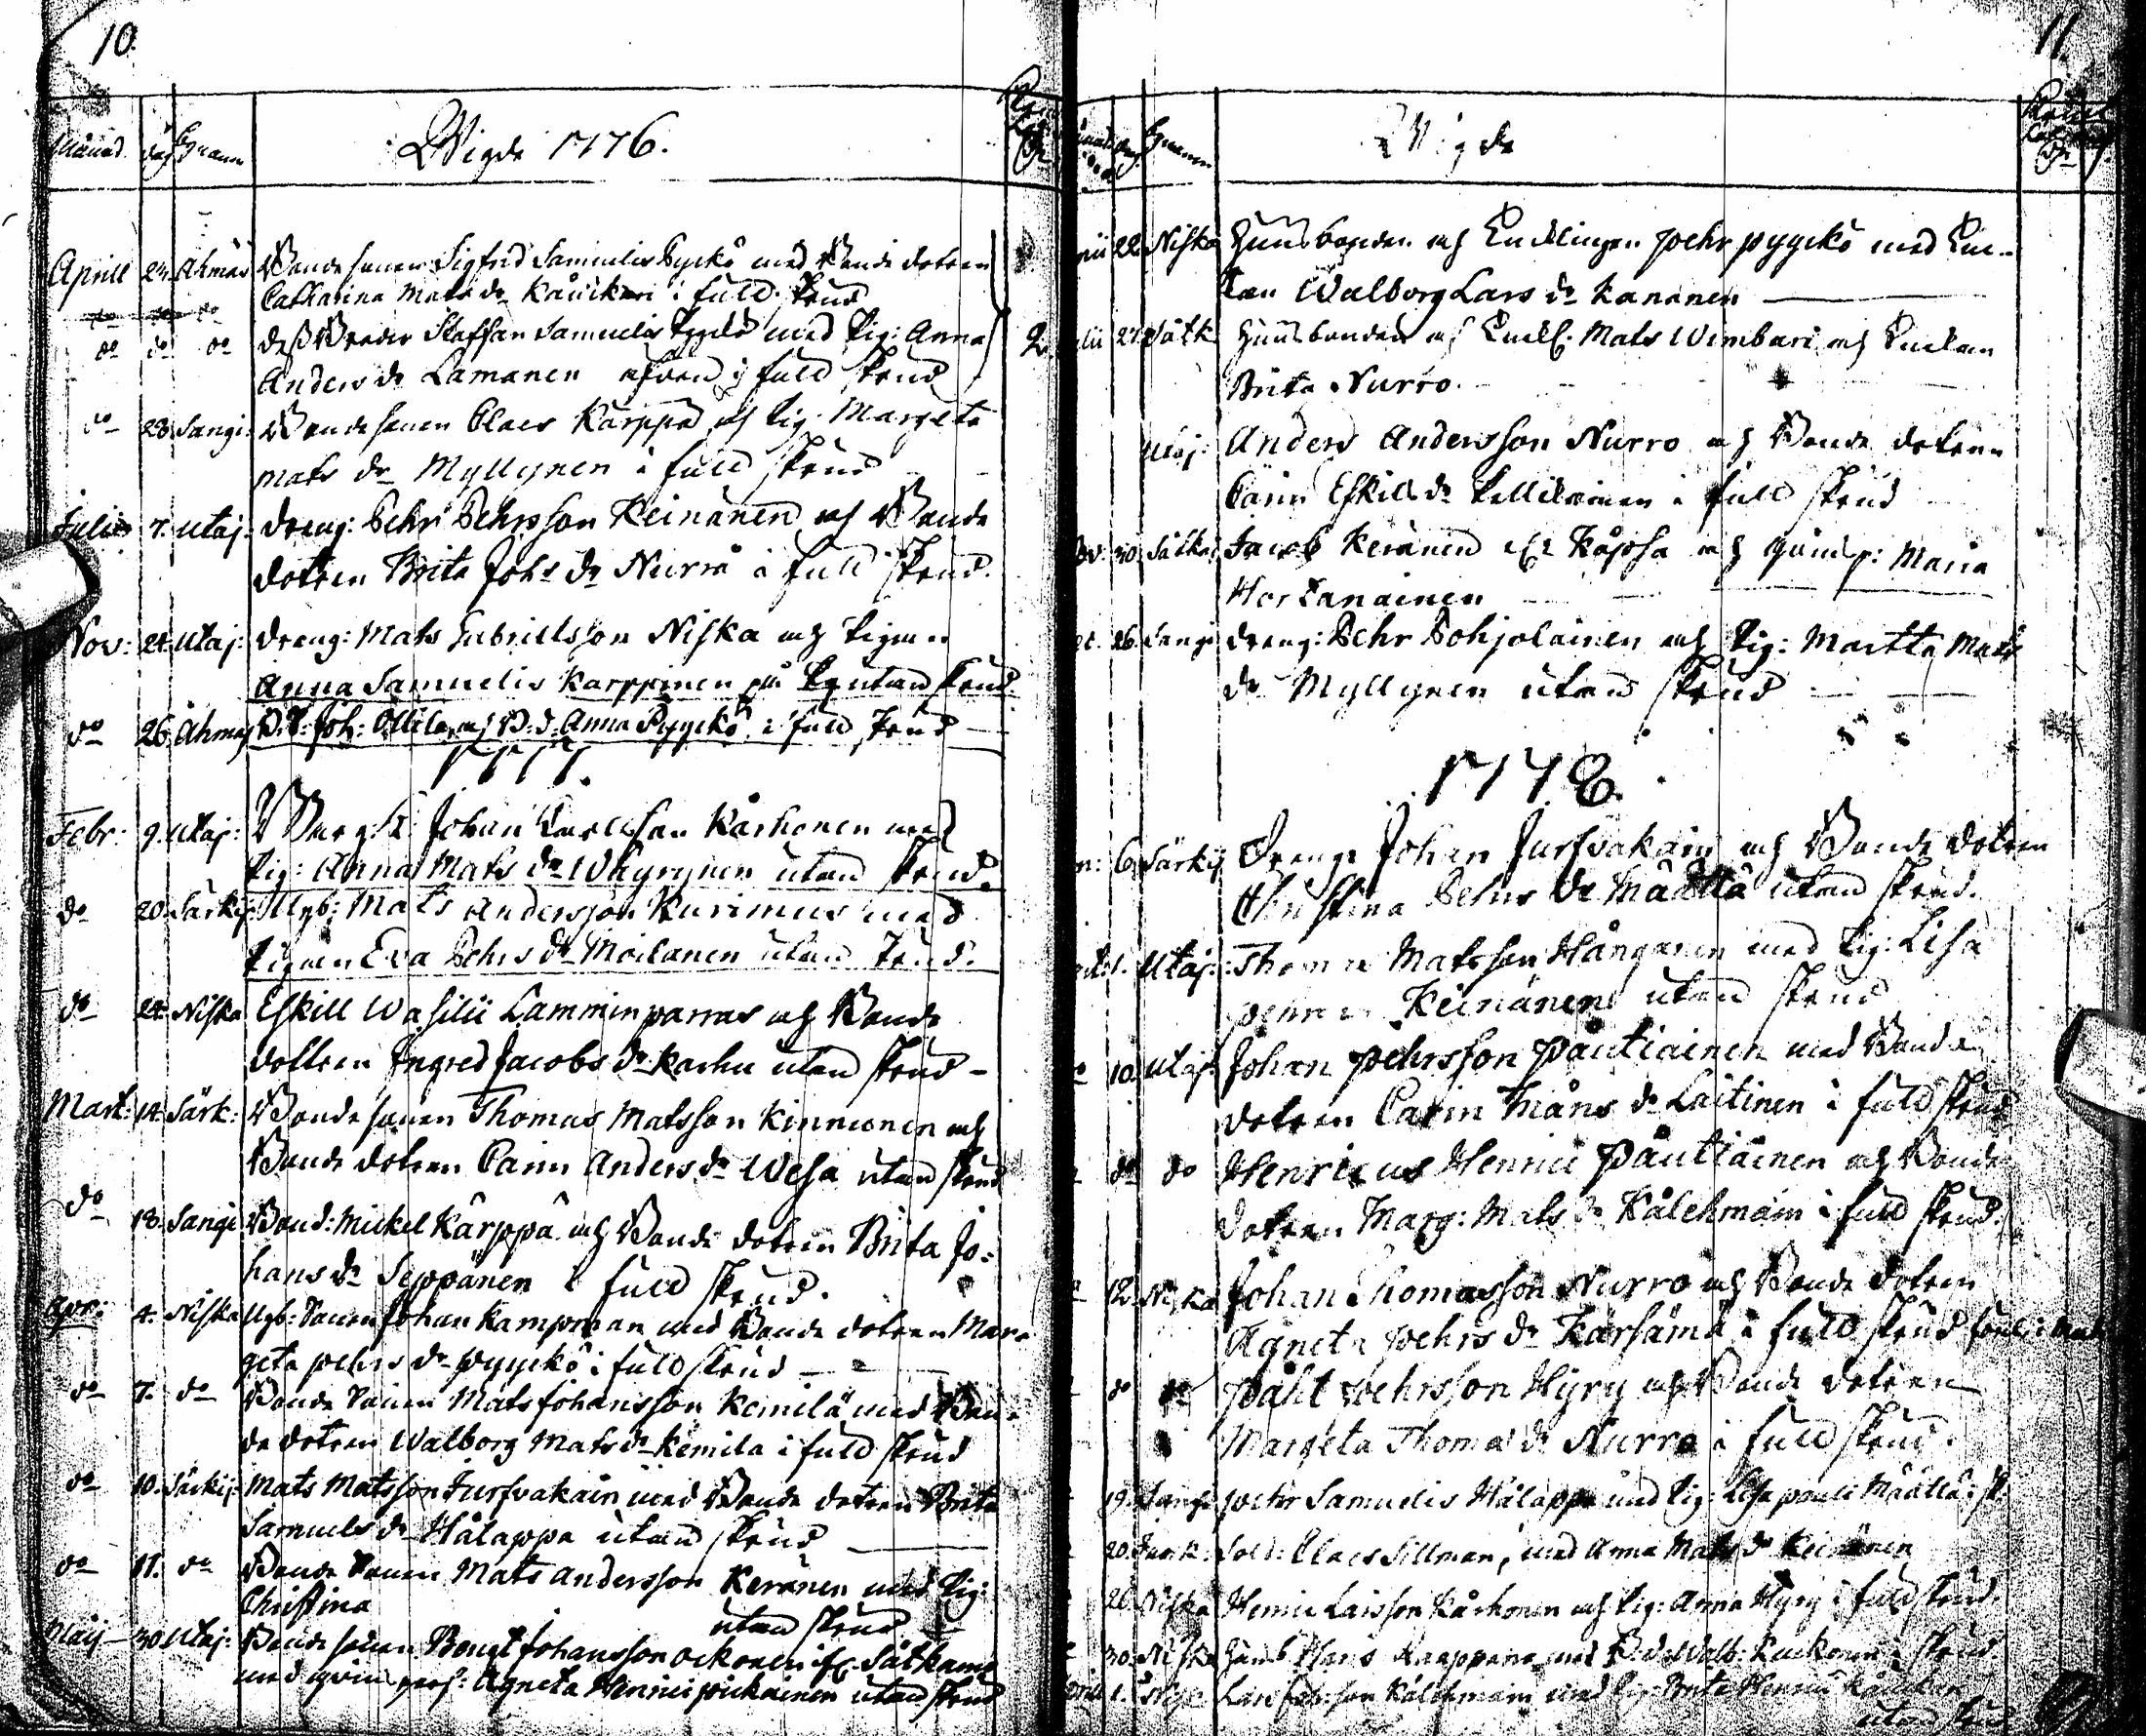 10.
Månad dag Byarne
Wigde 1776.
Aprill 24. Ahmas Bondesonen Sigfred Samuelis Pyckö med Bonde dotren
Catharina Mats dr Kauckari i full skrud
do do do dess Broder Staffan Samuelis Pyckö med Pig: Anna
Anders dr Lamanen i full skrud
2.
do 28. Sangi: Bondesonen Claes Karppa och Pig: Margeta
Mats dr Myllynen i full skrud
Julii 7. Utaj: Dreng: Pehr Pehrsson Keinänen och Bonde
dotren Brita Johs dr Nurro i full skrud.
Nov: 24. Utaj: Dreng: Mats Gabrielsson Niska och Pigan
Anna Samuelis Karppinen utan skrud
do 26. Ahmas B. S. Joh: Ollila och B: d. Anna Pyyckö i full skrud
1777.
Febr: 9. Utaj: Johan Karhonen med
Pig: Anna Mats dr utan skrud.
do 20. Särkij: Nyb: Mats Andersson Kurimus med
Pigan Eva Pehrs dr Moilanen utan skrud.
do 24. Niska Eskill Wasilii Lamminparras och Bonde
dottren Ingred Jacobs dr Karhu utan skrud
Mart: 14. Särk: Bondesonen Thomas Matsson Kinnunen och
Bonde dotren Carin Anders dr Wesa utan skrud
do 18. Sangi Bond: Mickel Kärppä och Bonde dotren Brita Jo=
hans dr Seppänen i full skrud.
Apr: 4. Niska Nyb: Sonen Johan Kampman med Bonde dotren Mar=
geta Pehrs dr Pyyckö i full skrud
do 7. do Bonde Sonen Mats Johansson Kemilä med Bon=
de dotren Walborg Mats dr Kemila i full skrud
do 10. Särkij: Mats Matsson Jursvakain med Bonde dotren Brita
Samuels dr Hålappa utan skrud
do 11. do Bonde Sonen Mats Andersson Keränen med Pig:
Christina utan skrud
Maij 30. Utaj: Bondesonen Bengt Johansson Ockonen if: Såtkamo
med qvin pers: Agneta Henrici Pickainen utan skrud
11.
Byarne
Wigde
22. Niska Huusbonden och Encklingen Pehr Pyyckö med En-
kan Walborg Lars dr Kananen
27. Såtk Huusbonden och Enckl: Mats Wimbari och Enckan
Brita Nurro.
Utaj: Anders Andersson Nurro och Bonde dotren
Carin Eskills dr i full skrud
30. Såtka Jacob Keränen Kåpsa och qvinsp: Maria
Hortanainen
26. Sangi Dreng: Pehr Pohjolainen och Pig: Martta Mats
dr Myllynen utan skrud
1778.
6. Särkij Dreng: Johan Jursvakain och Bonde dotren
Christina Pehrs dr Määttä utan skrud.
1. Utaj: Thomas Matsson Hånganen med Pig: Lisa
Keinänen utan skrud
10. Utaj: Johan Pehrsson Påutiainen med Bonde
dotren Carin Måns dr Laitinen i full skrud
do do Henricus Henrici Påutiainen och Bonde
dotren Marg: Mats dr Kålehmain i full skrud.
12. Niska Johan Thomasson Nurro och Bonde dotren
Agneta Pehrs dr Kärsämä i full skrud
do do Påhl Pehrsson Hyry och Bonde dotren
Margeta Thomas dr Nurro i full skrud.
19. Pehr Samuelis Hålappa med Pig: Lisa Pauli Määttä
20. Sold: Claes Sillman, med Anna Mats dr Keinänen
26. Niska Henric Larsson Karhonen och Pig: Anna Hyry i full skrud.
30. Niska Hans med B: d: Walb: skrud.
1. Lars Kålehmain med Pig: Brita Henrici
utan skrud